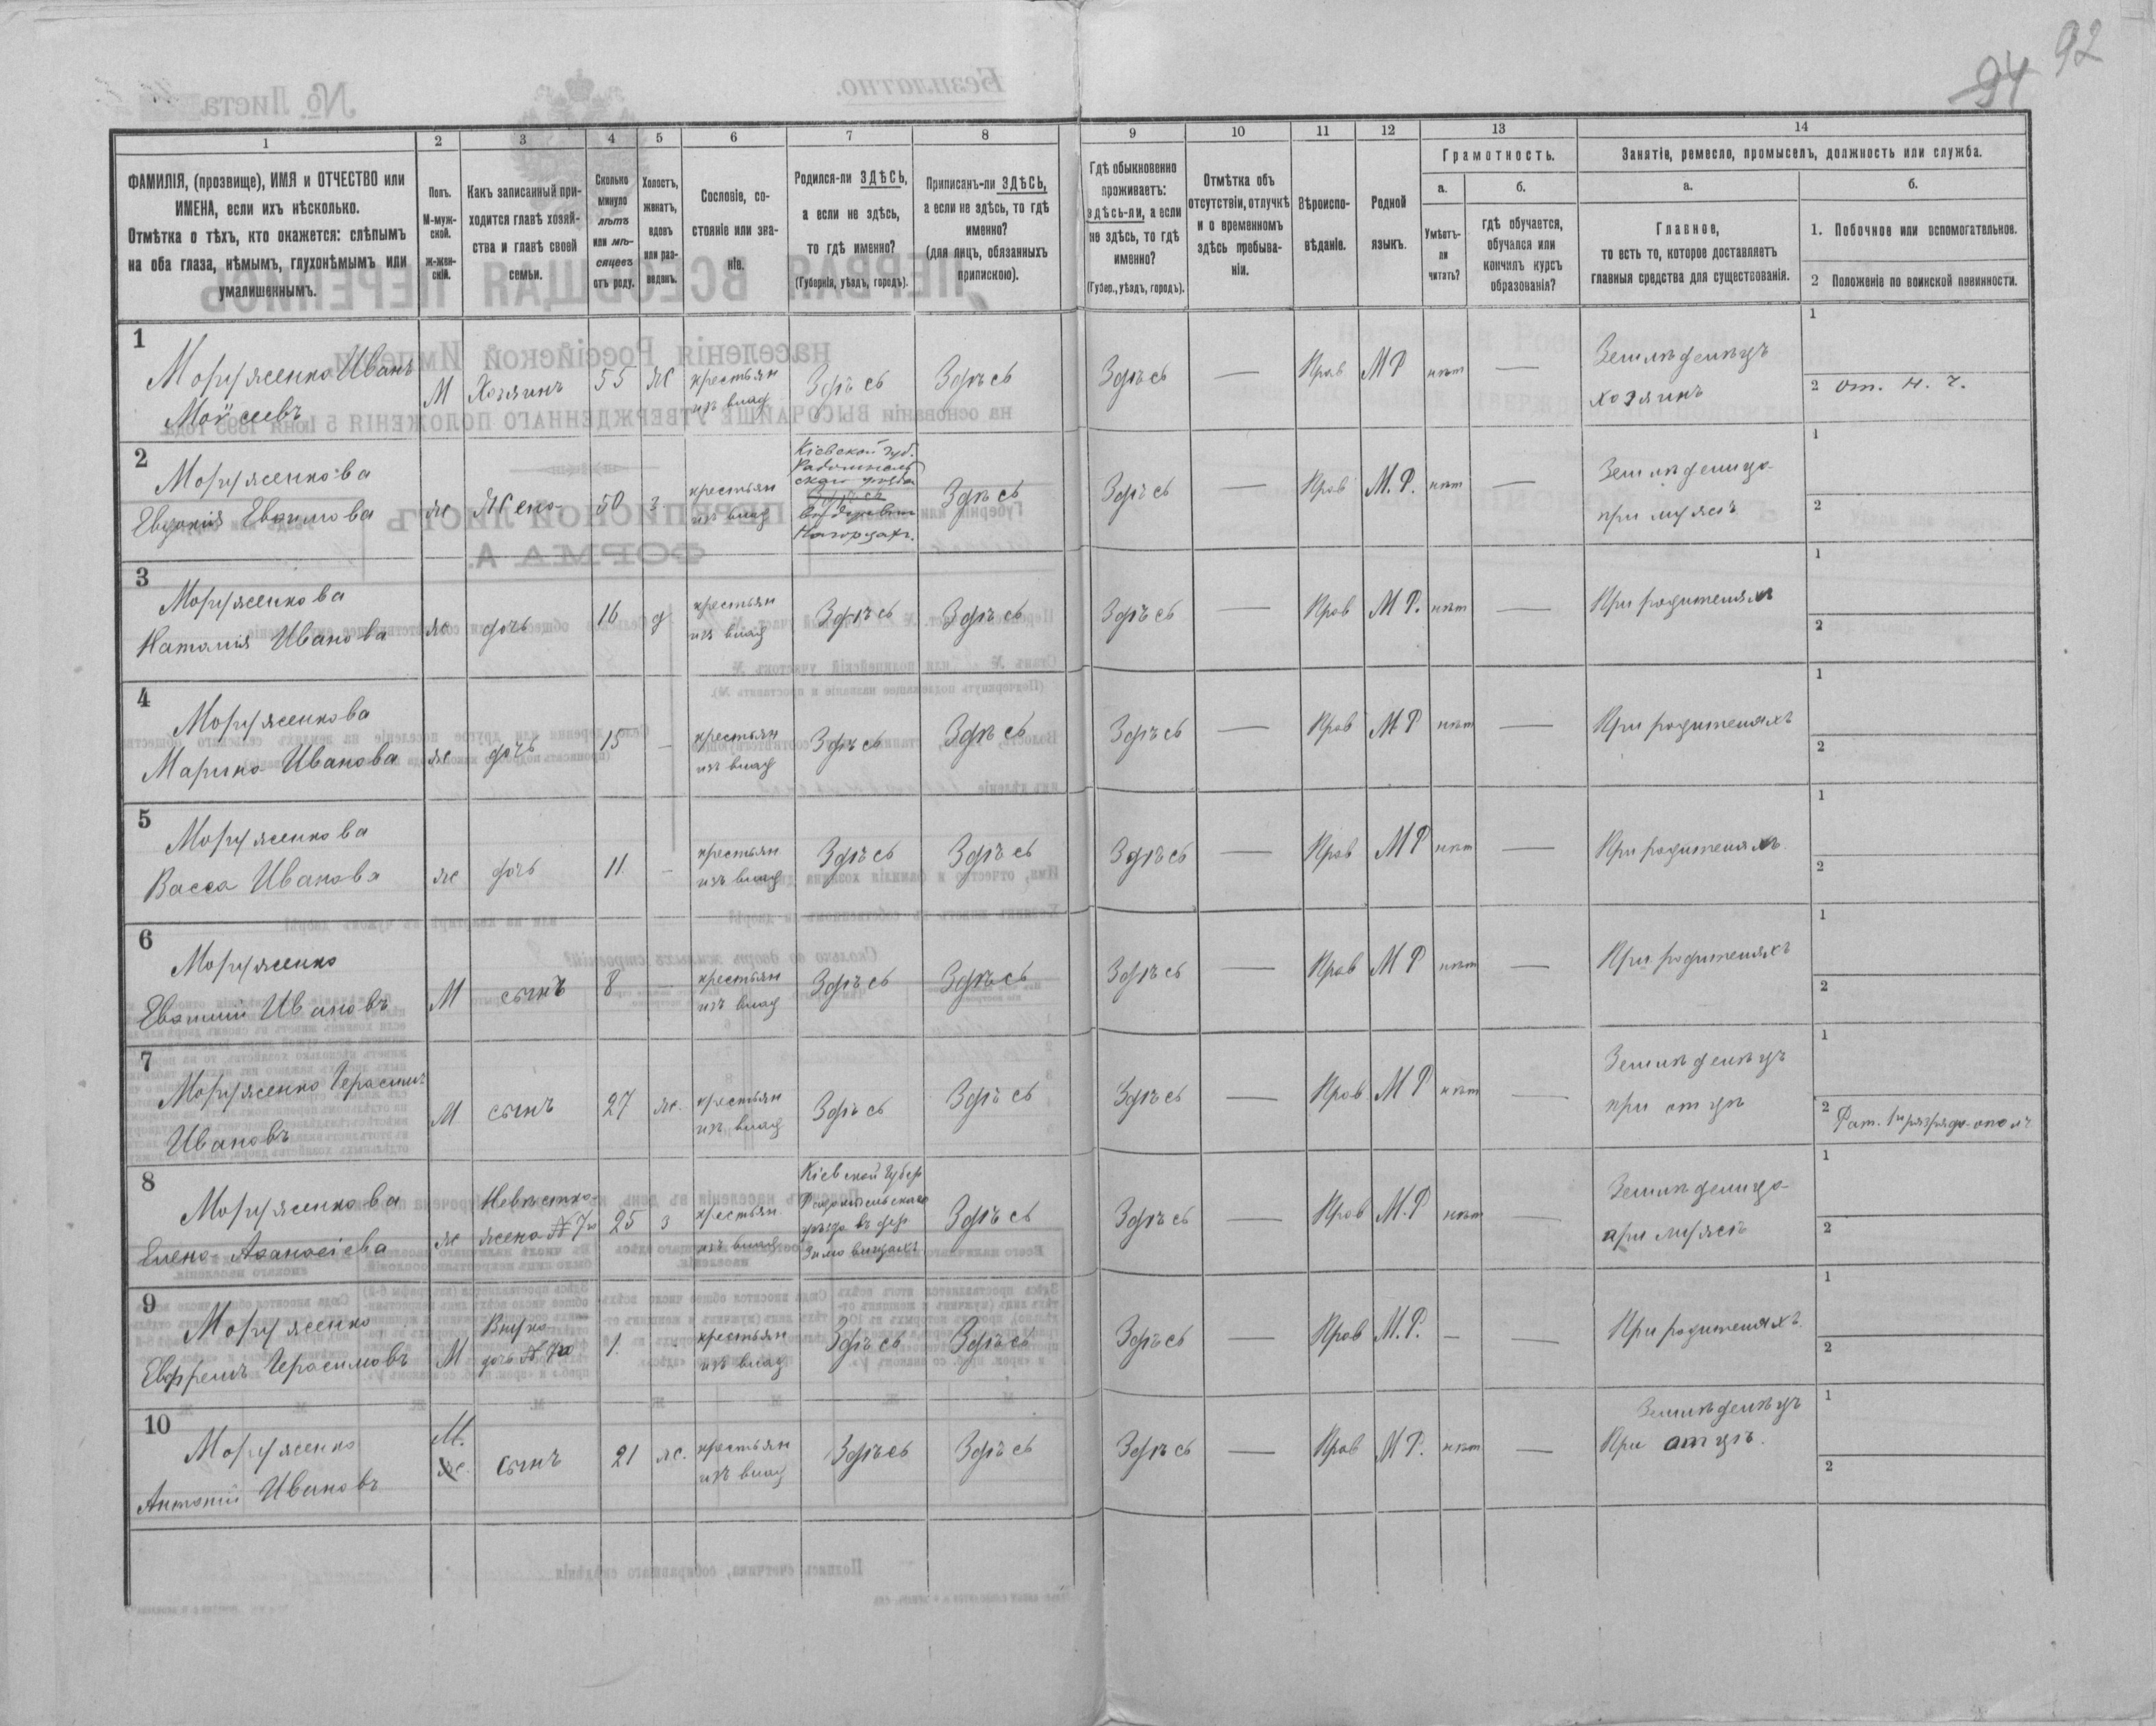 92
94
1 2 3 4 5 6 7 8 9 10 11 12 13 14
ФАМИЛІЯ, (прозвище), ИМЯ и ОТЧЕСТВО или
ИМЕНА, если ихъ нѣсколько.
Отмѣтка о тѣхъ, кто окажется: слѣпымъ
на оба глаза, нѣмымъ, глухонѣмымъ или
умалишеннымъ.
Полъ.
М-муж-
ской.
Ж-жен-
скій.
Какъ записанный при-
ходится главѣ хозяй-
ства и главѣ своей
семьи.
Сколько
минуло
лѣтъ
или мѣ-
сяцевъ
отъ роду.
Холостъ,
женатъ,
вдовъ
или раз-
веденъ.
Сословіе, со-
стояніе или зва-
ніе.
Родился-ли ЗДѢСЬ,
а если не здѣсь,
то гдѣ именно?
(Губернія, уѣздъ, городъ).
Приписанъ-ли ЗДѢСЬ,
а если не здѣсь, то гдѣ
именно?
(для лицъ, обязанныхъ
припискою).
Гдѣ обыкновенно
проживаетъ:
здѣсь-ли, а если
не здѣсь, то гдѣ
именно?
(Губер., уѣздъ, городъ).
Отмѣтка объ
отсутствіи, отлучкѣ
и о временномъ
здѣсь пребыва-
ніи.
Вѣроиспо-
вѣданіе.
Родной
языкъ.
Грамотность.
а.
Умѣетъ-
ли
читать?
б.
гдѣ обучается,
обучался или
кончилъ курсъ
образованія?
Занятіе, ремесло, промыселъ, должность или служба.
а.
Главное,
то есть то, которое доставляетъ
главныя средства для существованія.
б.
1. Побочное или вспомогательное.
2 Положеніе по воинской повинности.
1
Моруженко Иванъ
Моѵсеевъ
М Хозяинъ 55 ж
крестьян
изъ влад
Здѣсь Здѣсь Здѣсь — Прав М Р нѣт —
Земледѣлецъ
хозяинъ
1
2 от. н. ч.
2
Моруженкова
Евдокія Евѳимова
ж Жена 50 з
крестьян
изъ влад
Кіевской губ.
Радомысль
скаго уѣзда
Здѣсь
въ деревни
Здѣсь Здѣсь — Прав М. Р. нѣт —
Земледѣлица
при мужѣ
1
2
3
Моруженкова
Наталия Иванова
ж дочь 16 д
крестьян
изъ влад
Здѣсь Здѣсь Здѣсь — Прав М Р. нѣт —
При родителях
1
2
4
Моруженкова
Марина Иванова
ж дочь 15 —
крестьян
изъ влад
Здѣсь Здѣсь Здѣсь — Прав М Р нѣт —
При родителяхъ
1
2
5
Моруженкова
Васса Иванова
ж дочь 11 —
крестьян
изъ влад
Здѣсь Здѣсь Здѣсь — Прав М Р нѣт —
При родителяхъ
1
2
6
Моруженко
Евѳимий Ивановъ
М сынъ 8 —
крестьян
изъ влад
Здѣсь Здѣсь Здѣсь — Прав М Р нѣт —
При родителяхъ
1
2
7
Моруженко Герасимъ
Ивановъ
М сынъ 27 ж.
крестьян
изъ влад
Здѣсь Здѣсь Здѣсь — Прав М Р нѣт —
Земледѣлецъ
при отцѣ
1
2 Рат. 1 разряда ополч
8
Моруженкова
Елена Аѳанасіева
ж
Невѣстка
жена № 7го
25 з
крестьян.
изъ влад
Кіевской Губер
Радомысльскаго
уѣзда въ дер
Здѣсь Здѣсь — Прав М. Р нѣт —
Земледѣлица
при мужѣ
1
2
9
Моруженко
Евфремъ Герасимовъ
М
Внука
дочь № 7го
1. —
крестьян
изъ влад
Здѣсь Здѣсь Здѣсь — Прав М. Р. — —
При родителяхъ.
1
2
10
Моруженко
Антоній Ивановъ
М.
ж.
сынъ 21 ж.
крестьян
изъ влад
Здѣсь Здѣсь Здѣсь — Прав М Р. нѣт —
Земледѣлецъ
При отцѣ.
1
2